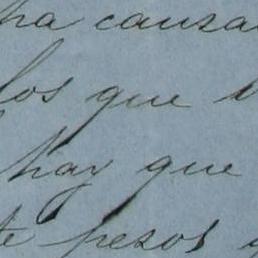 ha causa
los que
hay que
te pesos